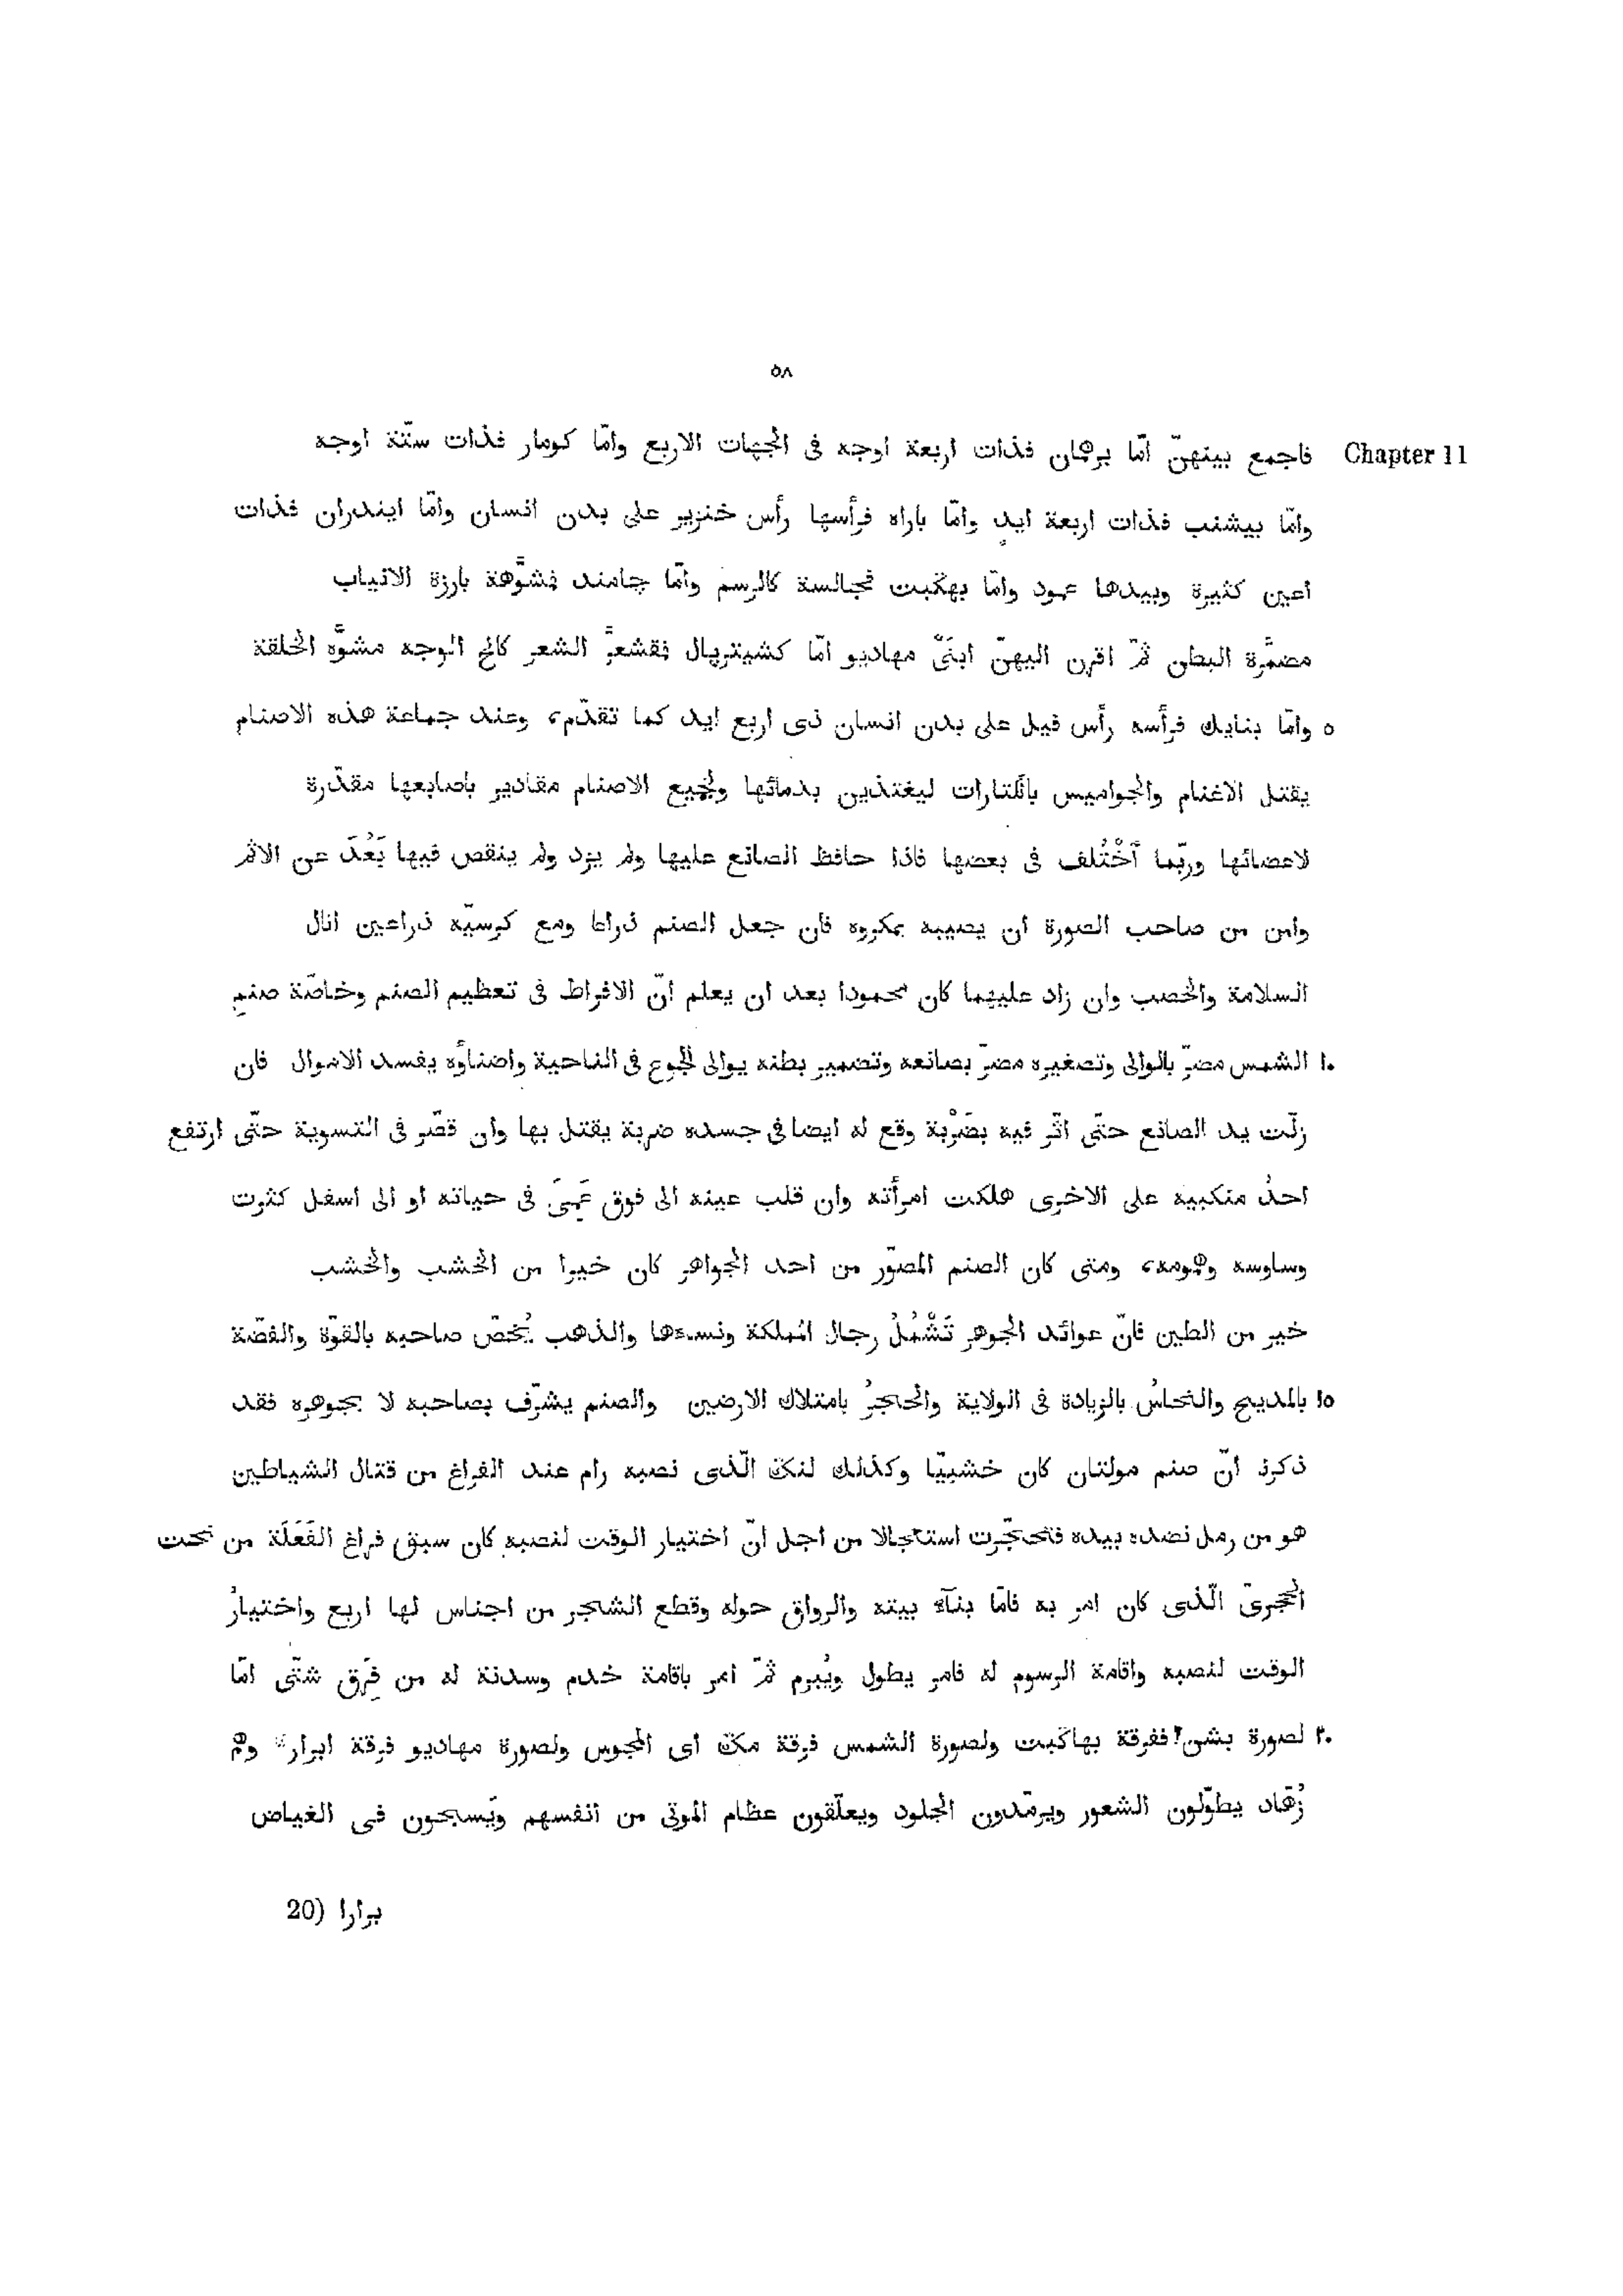 ٥٨
Chapter 11
فاجمع بينهنّ امّا برهمان فذات اربعة اوجه فى الجهات الاربع وامّا كومار فذات ستّة اوجه
وامّا بيشنب فذات اربعة ايدٍ وامّا باراه فرأسها رأس خنزير على بدن انسان وامّا ايندران فذات
اعين كثيرة وبيدها عمود وامّا بهكبت فجالسة كالرسم وامّا جامند فمشوَّهة بارزة الانياب
مضمَّرة البطن ثمّ اقرن اليهنّ ابنَىْ مهاديو امّا كشيتريال فمقشعرّ الشعر كالح الوجه مشوَّه الخلقة
٥ وامّا بنايك فرأسه رأس فيل على بدن انسان ذى اربع ايد كما تقدّم، وعند جماعة هذه الاصنام
يقتل الاغنام والجواميس بالكتارات ليغتذين بدمائها ولجميع الاصنام مقادير باصابعها مقدّرة
لاعضائها وربّما اخْتُلف فى بعضها فاذا حافظ الصانع عليها ولم يزد ولم ينقص فيها بَعُدَ عن الاثم
وامن من صاحب الصورة ان يصيبه بمكروه فان جعل الصنم ذراعا ومع كرسيّه ذراعين انال
السلامة والخصب وان زاد عليهما كان محمودا بعد ان يعلم انّ الافراط فى تعظيم الصنم وخاصّة صنمِ
١٠ الشمس مضرّ بالوالى وتصغيره مضرّ بصانعه وتضمير بطنه يوالى الجوع فى الناحية واضناؤه يفسد الاموال فان
زلّت يد الصانع حتّى اثّر فيه بضَرْبة وقع له ايضا فى جسده ضربة يقتل بها وان قصّر فى التسوية حتّى ارتفع
احدُ منكبيه على الاخرى هلكت امرأته وان قلب عينه الى فوق عَمِىَ فى حياته او الى اسفل كثرت
وساوسه وهمومه، ومتى كان الصنم المصوّر من احد الجواهر كان خيرا من الخشب والخشب
خير من الطين فانّ عوائد الجوهر تَشْمُلُ رجال المملكة ونسءها والذهب يُخصّ صاحبه بالقوّة والفضّة
١٥ بالمديح والنحاسُ بالزيادة فى الولاية والحجرُ بامتلاك الارضين والصنم يشرّف بصاحبه لا بجوهره فقد
ذكرنا انّ صنم مولتان كان خشبيّا وكذلك لنك الّذى نصبه رام عند الفراغ من قتال الشياطين
هو من رمل نضده بيده فتحجّرت استعجالا من اجل انّ اختيار الوقت لنصبه كان سبق فراغ الفَعَلَة من نحت
الحجرىّ الّذى كان امر به فامّا بنآء بيته والرواق حوله وقطع الشجر من اجناس لها اربع واختيارُ
الوقت لنصبه واقامة الرسوم له فامر يطول ويُبرم ثمّ امر باقامة خدم وسدنة له من فِرَق شتّى امّا
٢٠ لصورة بشن ففرقة بهاكبت ولصورة الشمس فرقة مك اى المجوس ولصورة مهاديو فرقة ابرار* وهم
زُهّاد يطوّلون الشعور ويرمّدون الجلود ويعلّقون عظام الموتى من انفسهم ويَسبحون فى الغياض
20) برارا